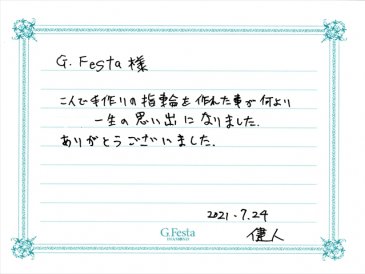 G. Festa 様
二人で手作りの指輪を作れた事が何より
一生の思い出になりました.
ありがとうございました.
2021.7.24
健人
G.Festa
DIAMONDS